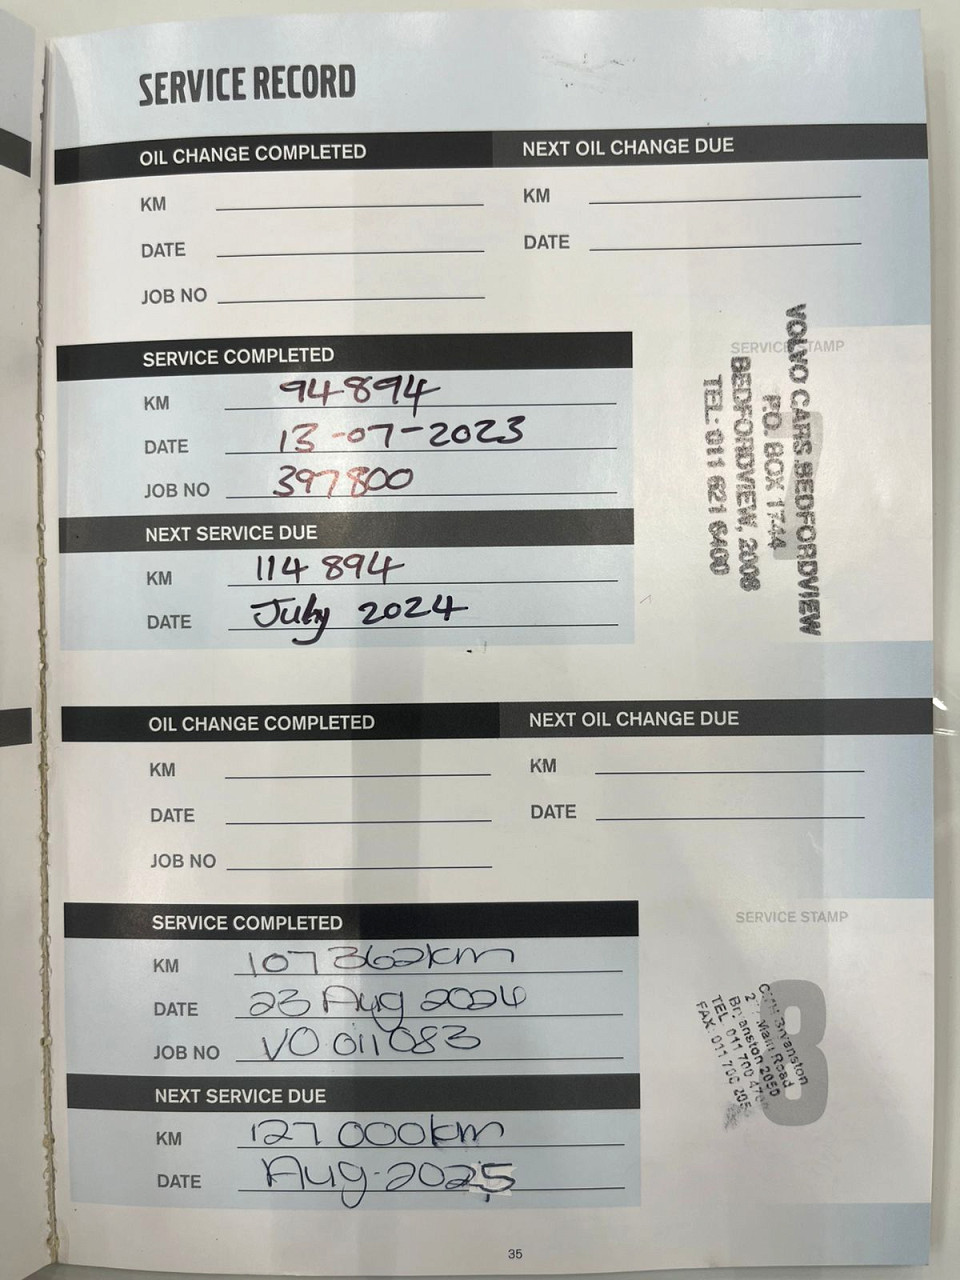 SERVICE RECORD
OIL CHANGE COMPLETED
KM
DATE
JOB NO
NEXT OIL CHANGE DUE
KM
DATE
SERVICE COMPLETED
KM 94894
DATE 13-07-2023
JOB NO 397800
NEXT SERVICE DUE
KM 114 894
DATE July 2024
SERVICE STAMP
VOLVO CARS BEDFORDVIEW
P.O. BOX 1744
BEDFORDVIEW, 2008
TEL: 011 621 6400
OIL CHANGE COMPLETED
KM
DATE
JOB NO
NEXT OIL CHANGE DUE
KM
DATE
SERVICE COMPLETED
KM 107 362km
DATE 23 Aug 2024
JOB NO VO 011083
NEXT SERVICE DUE
KM 127 000km
DATE Aug-2025
SERVICE STAMP
8
Bryanston
Main Road
Bryanston 2050
TEL: 011 700
FAX: 011 700
35